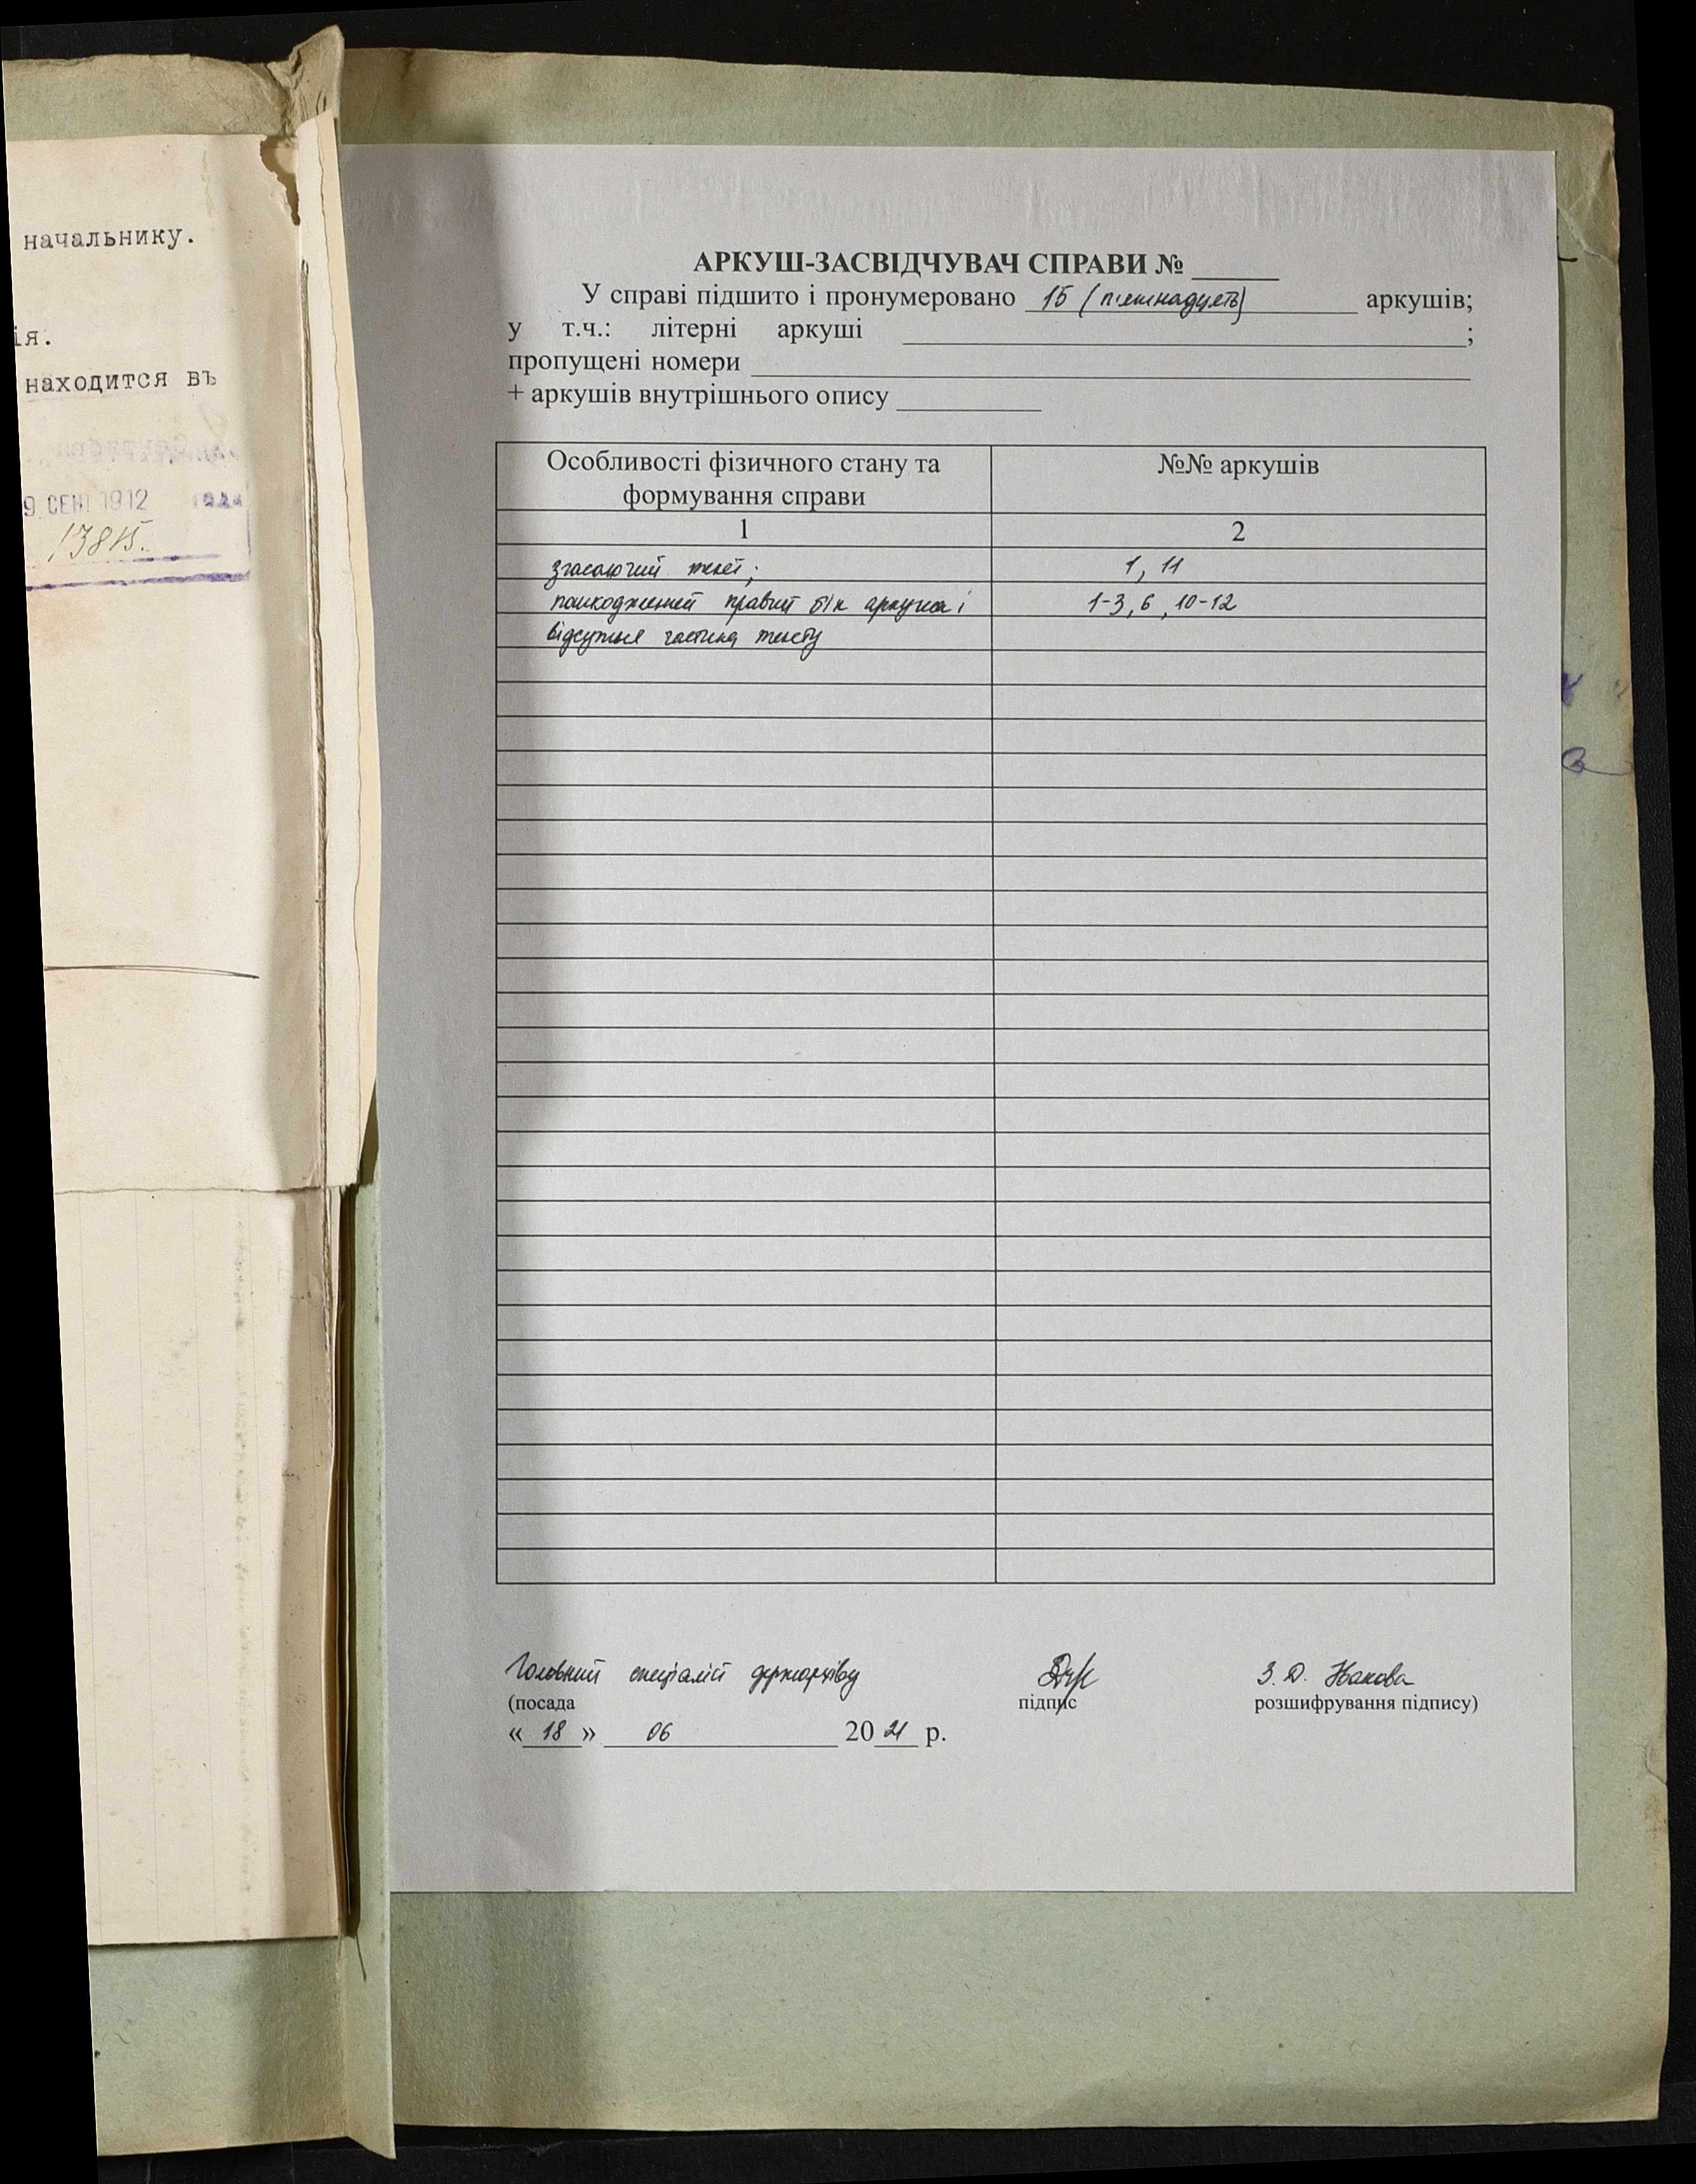 начальнику.
ія.
находится въ
9 СЕН 1912
13815.
АРКУШ-ЗАСВІДЧУВАЧ СПРАВИ № ______
У справі підшито і пронумеровано 15 (п'ятнадцять) аркушів;
у т.ч.: літерні аркуші ;
пропущені номери
+ аркушів внутрішнього опису
Особливості фізичного стану та формування справи
№№ аркушів
1 2
згасаючий текст; 1, 11
пошкоджений правий бік аркуша і 1-3, 6, 10-12
відсутня частина тексту
Головний спеціаліст держархіву З. Д.
(посада підпис розшифрування підпису)
« 18 » 06 2021 р.